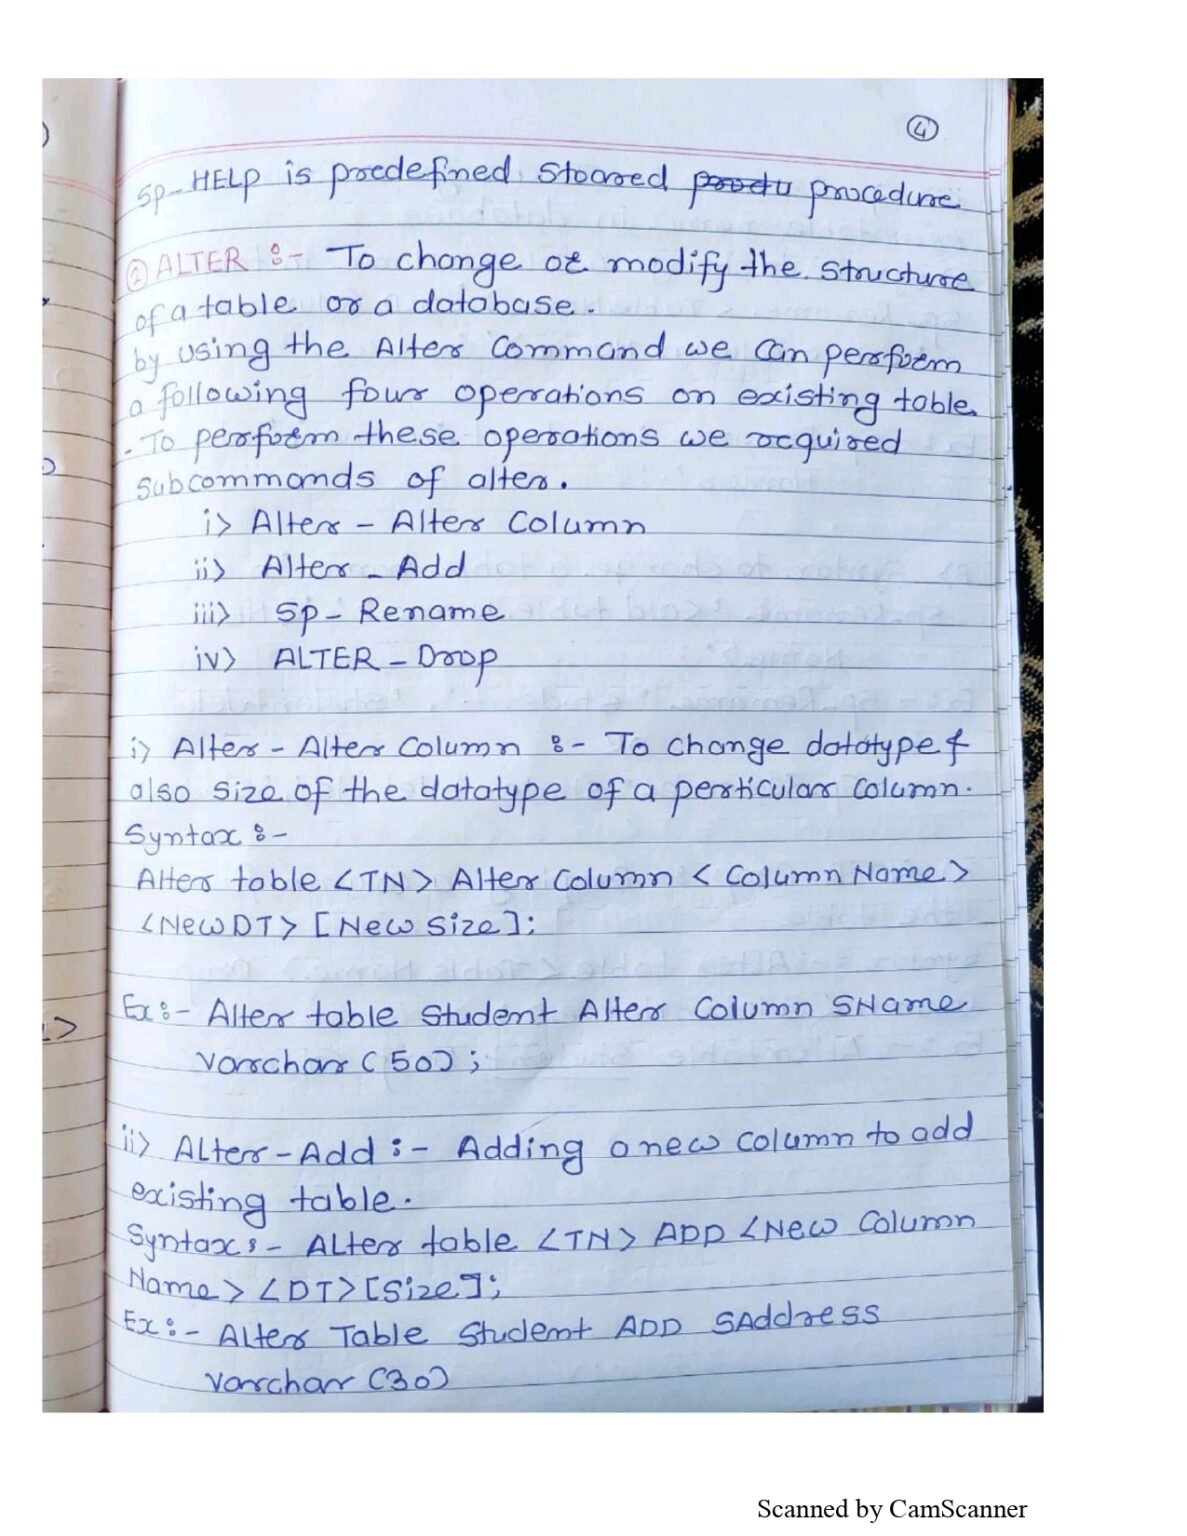 4
Sp-HELP is predefined Stoared procedure
② ALTER :- To change or modify the structure
of a table or a database.
by using the Alter Command we Can perform
a following four operations on existing table
. To perform these operations we required
Subcommands of alter.
i> Alter - Alter Column
ii> Alter - Add
iii> Sp - Rename
iv> ALTER - Drop
i> Alter - Alter Column :- To change datatype &
also size of the datatype of a perticular Column.
Syntax :-
Alter table <TN> Alter Column < Column Name>
<New DT> [New Size];
Ex :- Alter table Student Alter Column SName
Varchar (50);
ii> Alter - Add :- Adding a new column to add
existing table.
Syntax :- Alter table <TN> ADD <New Column
Name> <DT> [Size];
Ex :- Alter Table Student ADD SAddress
Varchar (30)
Scanned by CamScanner